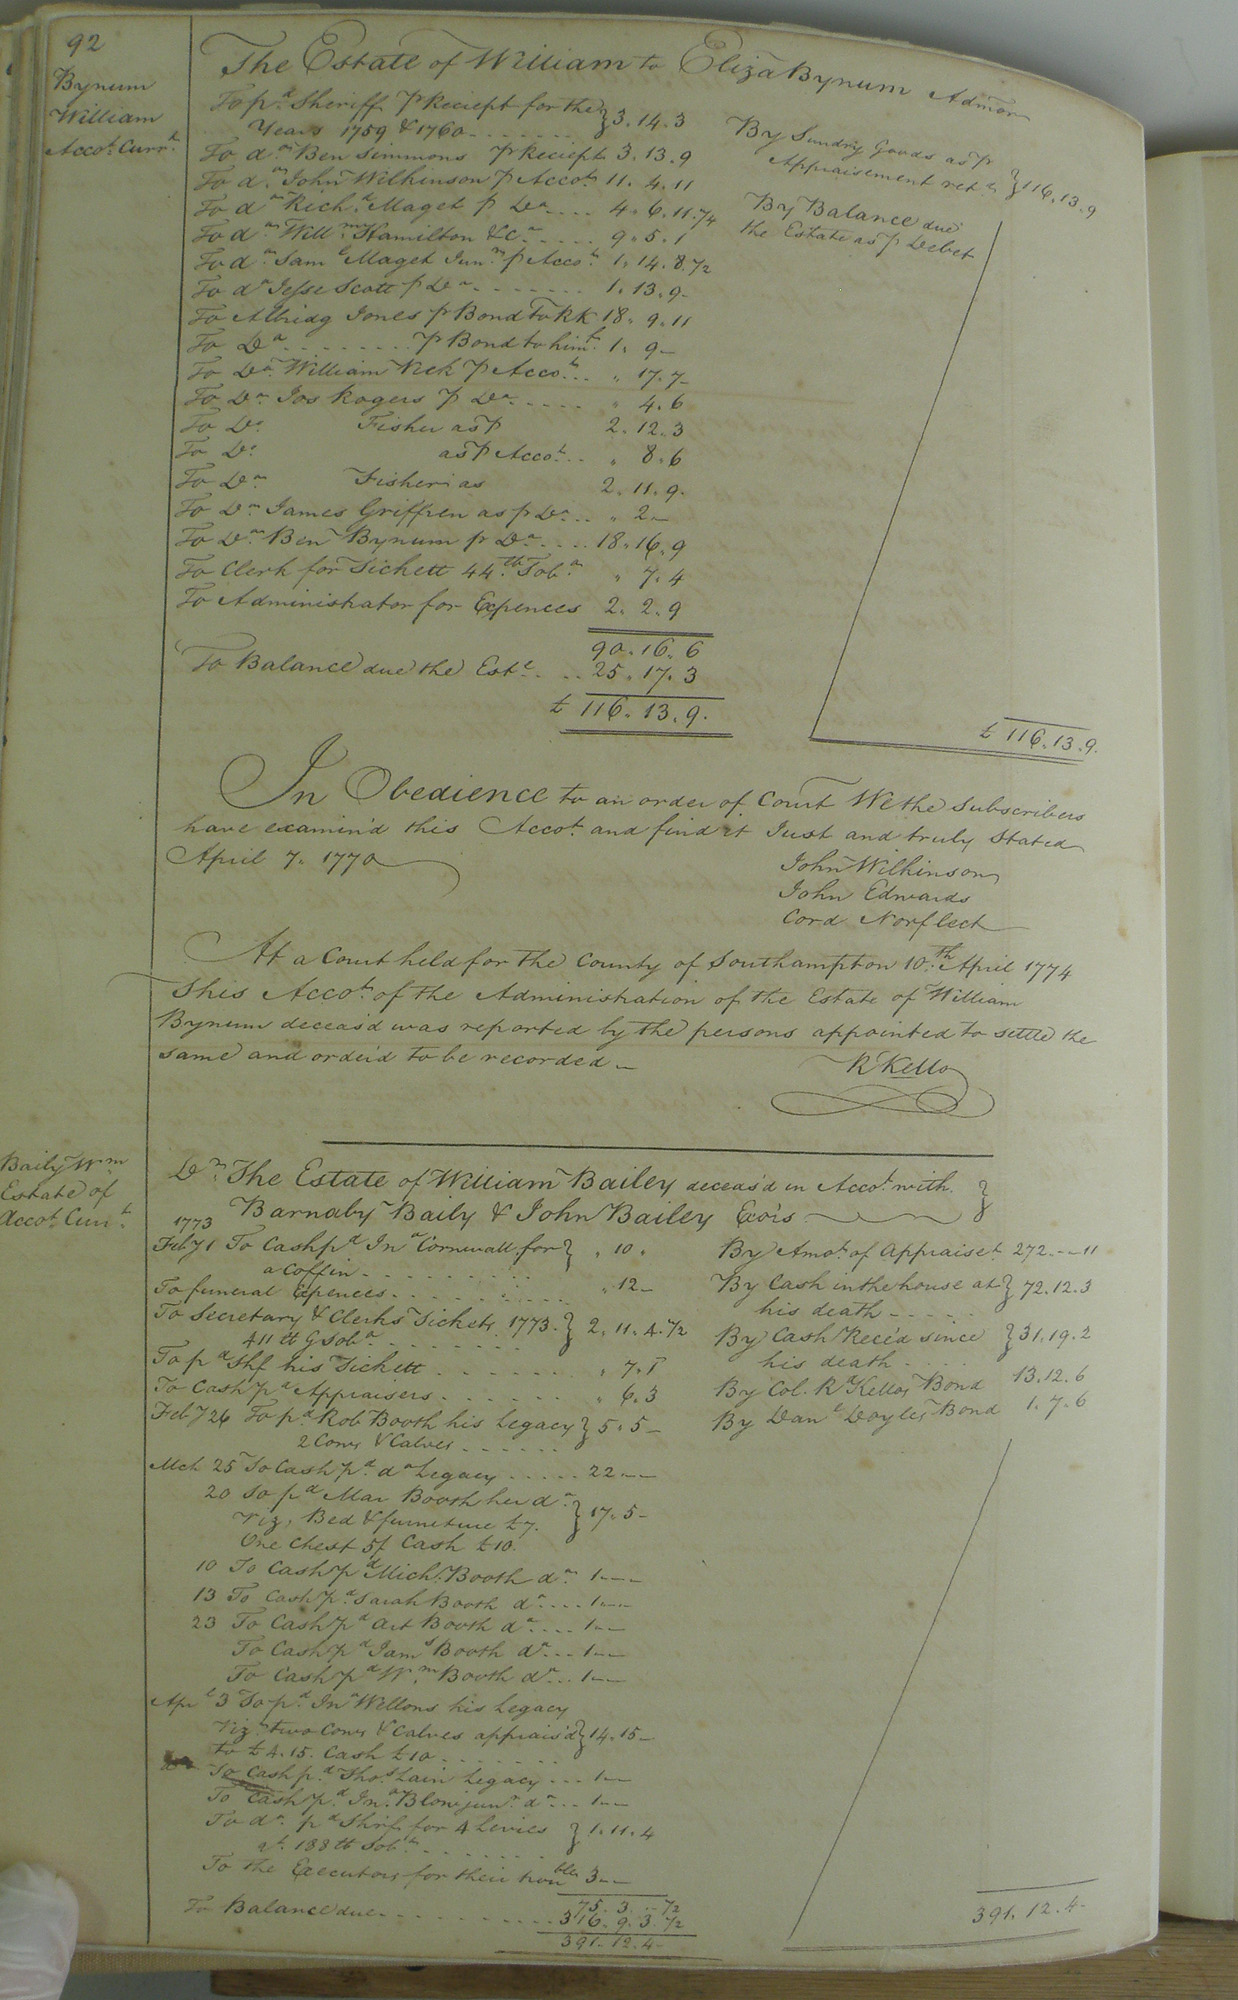 92
Bynum
William
Acco.t Curr.t
The Estate of William to Eliza Bynum Admor
To p.d Sheriff p Reciept for the } 3. 14. 3
Years 1759 & 1760
To d.o Ben Simmons p Reciept 3. 13. 9
To d.o John Wilkinson p Acco.t 11. 4. 11
To d.o Rich.d Maget p D.o 4. 6. 11. 1/4
To d.o Will.m Hamilton &c. 9. 5. 1
To d.o Sam.l Maget Jun.r p Acco.t 1. 14. 8. 1/2
To d.o Jesse Scott p D.o 1. 13. 9
To Albridg Jones p Bond to RK 18. 9. 11
To D.o p Bond to him 1. 9 —
To D.o William Vick p Acco.t " 17. 7
To D.o Jos Rogers p D.o " 4. 6
To D.o Fisher as p 2. 12. 3
To D.o as p Acco.t " 8. 6
To D.o Fisher as 2. 11. 9.
To D.o James Griffien as p D.o " 2 —
To D.o Ben Bynum p D.o 18. 16. 9
To Clerk for Tickett 44 lb Tob.o " 7. 4
To Administrator for Expences 2. 2. 9
90. 16. 6
To Balance due the Est.e 25. 17. 3
£ 116. 13. 9.
By Sundry Goods as p
Appraisement ret.d } 116. 13. 9
By Balance due
the Estate as p Debet
£ 116. 13. 9.
In Obedience to an order of Court We the Subscribers
have examin'd this Acco.t and find it Just and truly Stated
April 7. 1770
John Wilkinson
John Edwards
Cord Norfleet
At a Court held for the County of Southampton 10.th April 1774
This Acco.t of the Administration of the Estate of William
Bynum deceas'd was reported by the persons appointed to settle the
same and order'd to be recorded
R Kello
Baily W.m
Estate of
Acco.t Curr.t
D.r The Estate of William Bailey deceas'd in Acco.t with
Barnaby Baily & John Bailey Exo'rs
1773
Feb.y 1 To Cash p.d Jn.o Cornwall for } " 10 "
a Coffin
To funeral Expences " 12 —
To Secretary & Clerks Tickets 1773 } 2. 11. 4. 1/2
411 lb G Tob.o
To p.d Shf his Tickett " 7. 1
To Cash p.d Appraisers " 6. 3
Feb.y 26 To p.d Rob Booth his Legacy } 5. 5 —
2 Cows & Calves
Mch 25 To Cash p.d d.o Legacy 22 — —
20 To p.d Mar Booth her d.o
Viz. Bed & furneture £7. } 17. 5 —
One Chest 5/ Cash £10.
10 To Cash p.d Mich. Booth d.o 1 — —
13 To Cash p.d Sarah Booth d.o 1 — —
23 To Cash p.d Art Booth d.o 1 — —
To Cash p.d Jam.s Booth d.o 1 — —
To Cash p.d W.m Booth d.o 1 — —
Apr.l 3 To p.d Jn.o Wellons his Legacy
Viz. two Cows & Calves apprais'd } 14. 15 —
to £4. 15. Cash £10
To Cash p.d Tho.s Lain Legacy 1 — —
To Cash p.d Jn.o Blow jun.r d.o 1 — —
To d.o p.d Shrif for 4 Levies } 1. 11. 4
q.t 188 lb Tob.o
To the Executors for their troubles 3 — —
75. 3. — 1/2
To Balance due 316. 9. 3. 1/2
391. 12. 4
By Amo.t of Appraise.t 272. — 11
By Cash in the house at } 72. 12. 3
his death
By Cash Rece'd since } 31. 19. 2
his death
By Col. R.d Kellos Bond 13. 12. 6
By Dan.l Doyles Bond 1. 7. 6
391. 12. 4